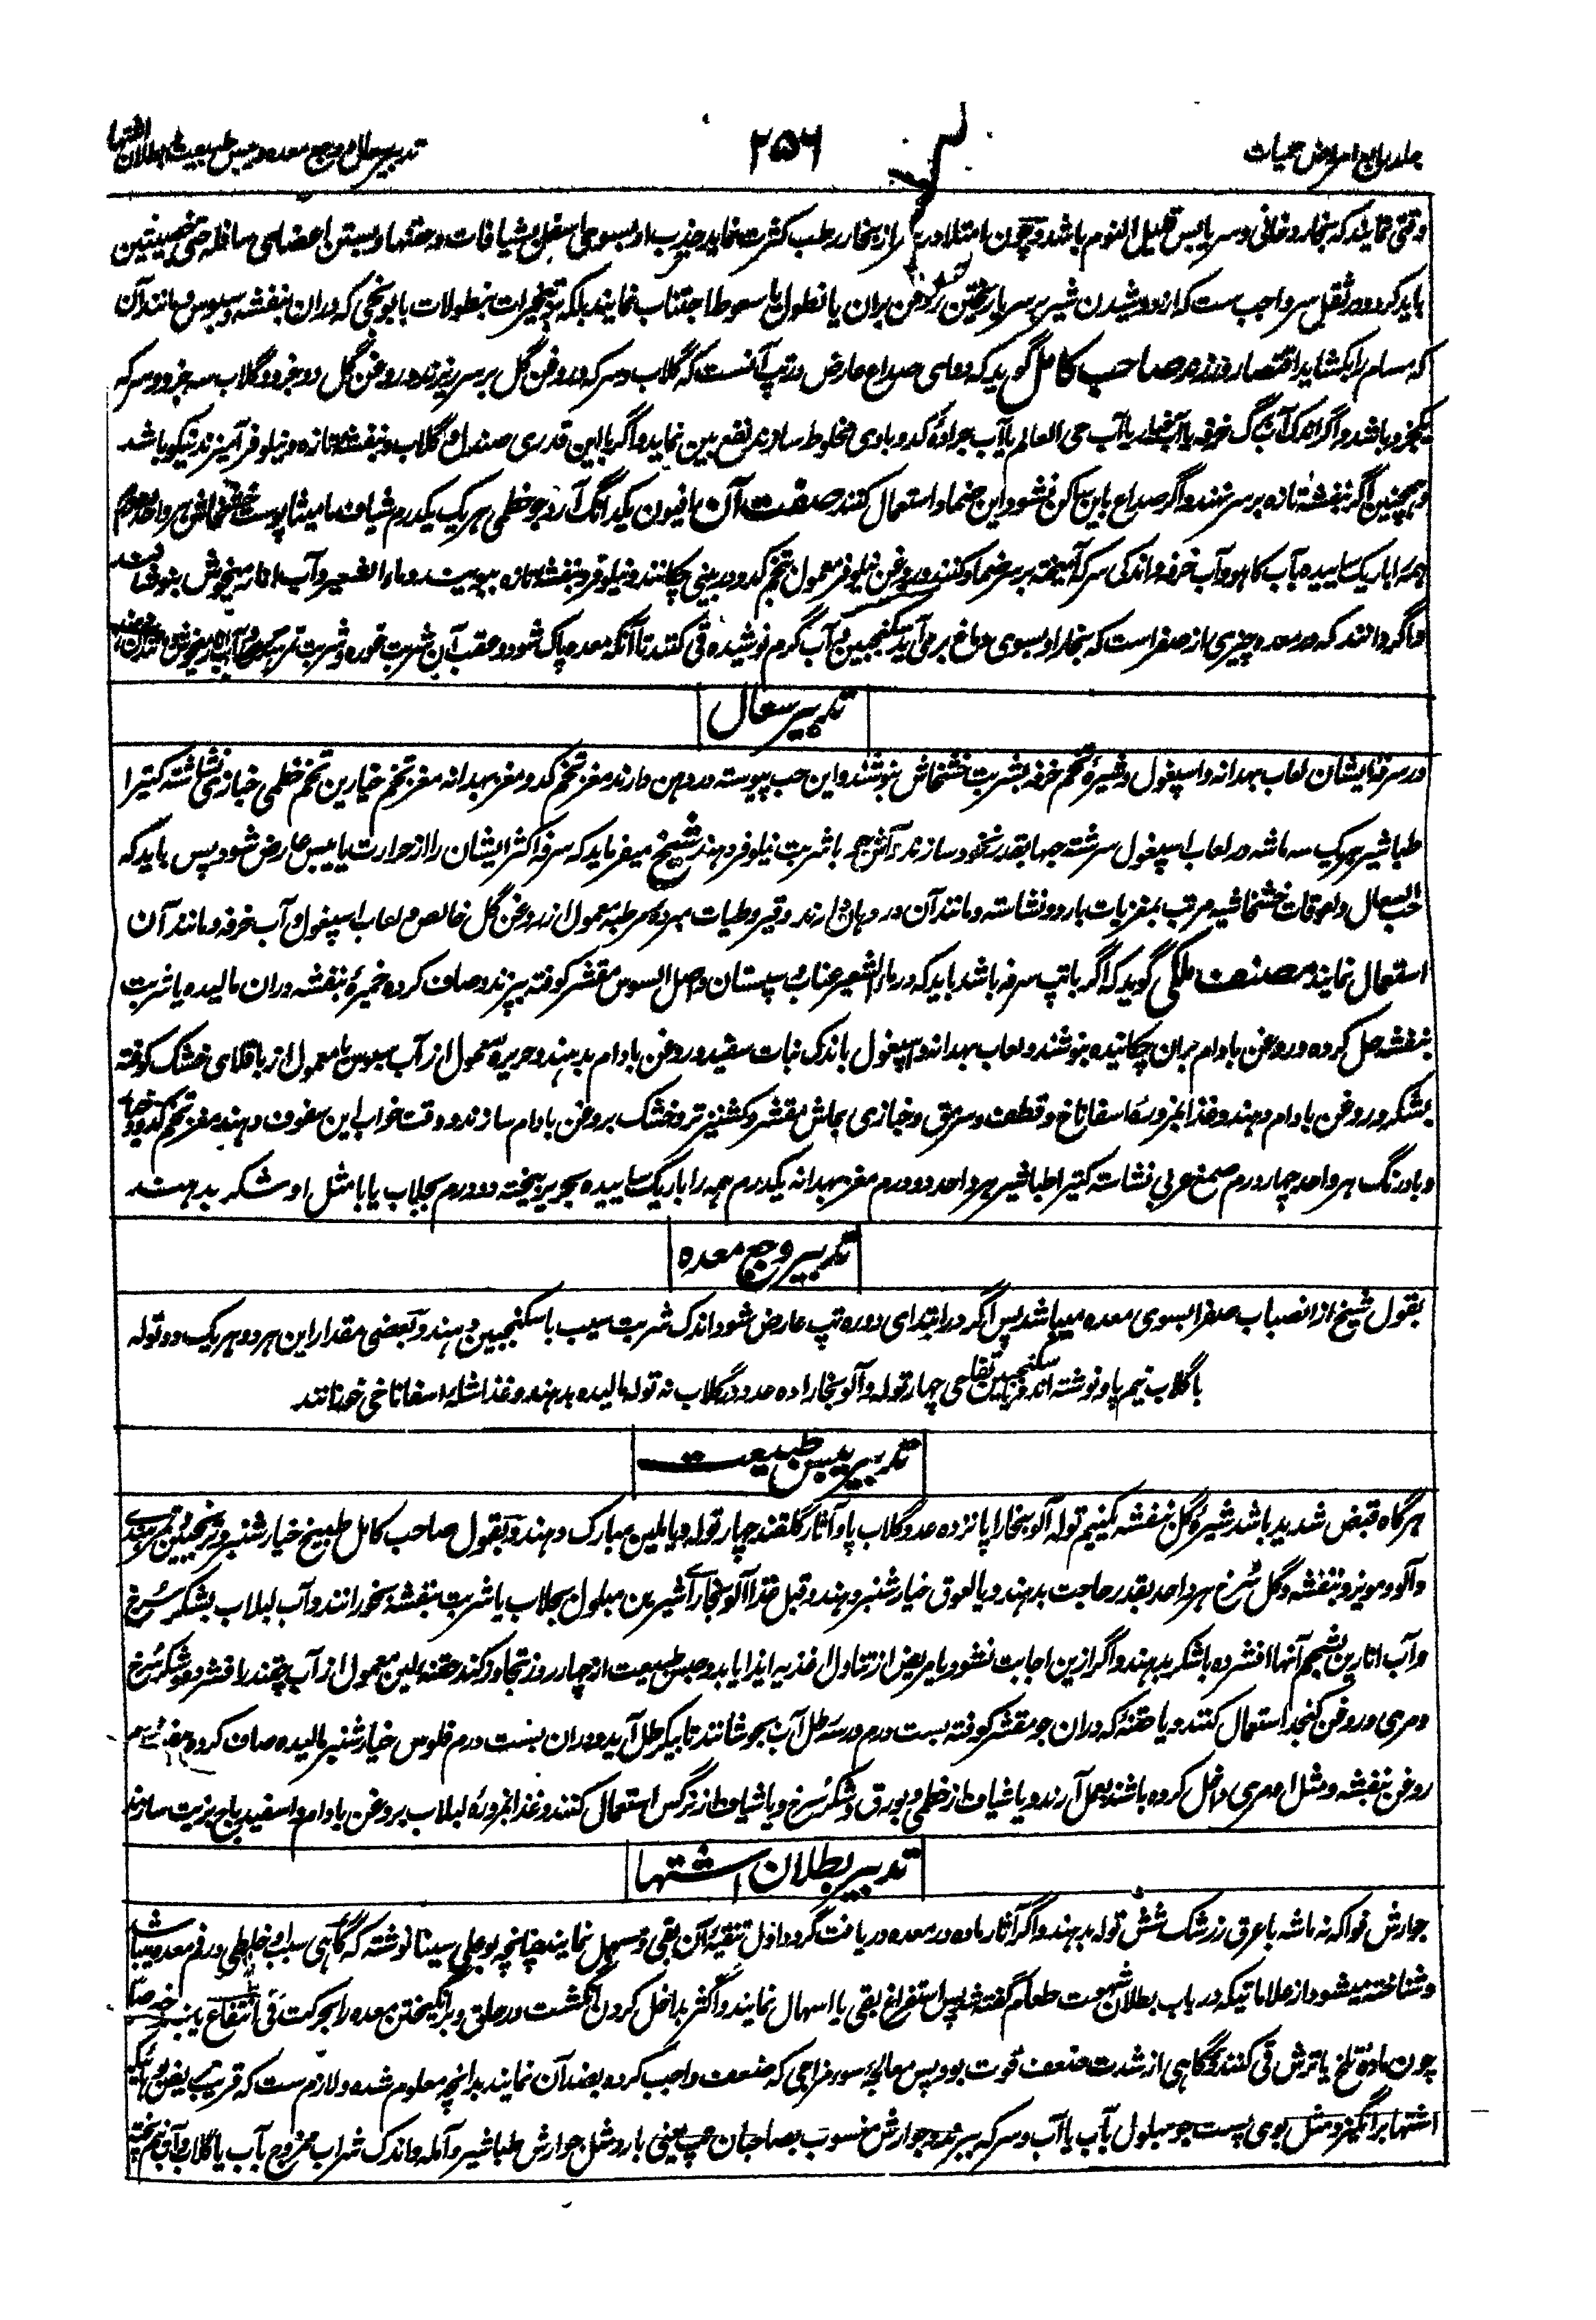 جلد رابع امراض حمیات
۲۵۶
تدبیر سعال و وجع معده و یبس طبیعت و بطلان اشتها
وقتی نمایند که بخار دخانی و سر یابس قلیل النوم باشد و چون امتلا در سر از بخار رطب کثرت نماید جذب او بسوی اسفل بشیافات و حقنها و بستن اعضای سافله حتی خصیتین
باید کرد و در ثقل سر واجب ست که از دوشیدن شیر بر سر یا ریختن روغن بران یا نطول یا سعوط اجتناب نمایند بلکه بر تبخیرات بنطولات بابونجی که دران بنفشه و سبوس و مانند آن
که مسام را بکشاید اقتصار ورزند و صاحب کامل گوید که دوای صداع عارض در تپ آنست که گلاب و سرکه و روغن گل بر سر ریزند و روغن گل دو جزو و گلاب سه جزو و سرکه
یکجزو باشد و اگر اندک آب برگ خرفه یا آب خیار یا آب حی العالم یا آب جراده کدو باوی مخلوط سازند نفع بین نماید و اگر با این قدری صندل و گلاب و بنفشه تازه و نیلوفر آمیزند نیکو باشد
و همچنین اگر بنفشه تازه بر سر نهند و اگر صداع باین ساکن نشود این ضماد استعمال کنند صفت آن افیون یکدانگ آرد جو خطمی هر یک یکدرم شیاف مامیثا پوست خشخاش هر واحد
همه را باریک سابیده بآب کاهو و آب خرفه و اندکی سرکه آمیخته بر سر ضماد کنند و روغن نیلوفر معمول بتخم کدو در بینی چکانند و نیلوفر و بنفشه تازه ببویند و ماء الشعیر و آب انار میخوش بنوشانند
و اگر دانند که در معده چیزی از صفرا است که بخار او بسوی دماغ بر می آید سکنجبین بآب گرم نوشیده قی کنند تا آنکه معده پاک شود و عقب آن شربت غوره و شربت تمر هندی
تدبیر سعال
در سرفه ایشان لعاب بهدانه و اسپغول و شیره تخم خرفه بشربت خشخاش بنوشند و این حب پیوسته در دهن دارند مغز تخم کدو مغز بهدانه مغز تخم خیارین تخم خطمی خبازی نشاسته کتیرا
طباشیر هر یک سه ماشه در لعاب اسپغول سرشته حبها بقدر نخود سازند و آش جو با شربت نیلوفر دهند شیخ میفرماید که سرفه اکثر ایشان را از حرارت یا یبس عارض شود پس باید که
حب سعال و لعوقات خشخاشیه مرتب بمغزیات بارد و نشاسته و مانند آن در دهان دارند و قیروطیات مبرده مرطبه معمول از روغن گل خالص و لعاب اسپغول و آب خرفه و مانند آن
استعمال نمایند مصنف ملکی گوید که اگر با تپ سرفه باشد باید که در ماء الشعیر عناب و سپستان و اصل السوس مقشر کوفته بپزند و صاف کرده خمیره بنفشه دران مالیده یا شربت
بنفشه حل کرده و روغن بادام بران چکانیده بنوشند و لعاب بهدانه و اسپغول باندک نبات سفید و روغن بادام بدهند و حریره معمول از آب سبوس یا معمول از باقلای خشک کوفته
بشکر و روغن بادام دهند و غذا بمزوره اسفاناخ و قطف و سرمق و خبازی و ماش مقشر و کشنیز تر و خشک بروغن بادام سازند و وقت خواب این سفوف دهند مغز تخم کدو و خیار
و بادرنگ هر واحد چهار درم صمغ عربی نشاسته کتیرا طباشیر هر واحد دو درم مغز بهدانه یکدرم همه را باریک سابیده بحریر بیخته دو درم بجلاب یا با مثل او شکر بدهند
تدبیر وجع معده
بقول شیخ از انصباب صفرا بسوی معده میباشد پس اگر در ابتدای دوره تپ عارض شود اندک شربت سیب با سکنجبین دهند و بعضی مقدار این هر دو هر یک دو توله
با گلاب نیم پاو نوشته اند و یا سکنجبین تفاحی چهار توله و آلو بخارا ده عدد در گلاب نه توله مالیده بدهند و غذا شله اسفاناخی خورانند
تدبیر یبس طبیعت
هر گاه قبض شدید باشد شیره گل بنفشه یکنیم توله آلو بخارا پانزده عدد گلاب پاو آثار گلقند چهار توله و یا ملین مبارک دهند و بقول صاحب کامل طبیخ خیار شنبر و ترنجبین و تمر هندی
و آلو و مویز و بنفشه و گل سرخ هر واحد بقدر حاجت بدهند و یا لعوق خیار شنبر دهند و قبل غذا آلو بخارای شیرین مبلول بجلاب یا شربت بنفشه بخورانند و آب لبلاب بشکر سرخ
و آب انارین بشحم آنها افشرده با شکر بدهند و اگر ازین اجابت نشود یا مریض از تناول اغذیه ایذا یابد و حبس طبیعت از چهار روز تجاوز کند حقنه لین معمول از آب چقندر افشرده و شکر سرخ
و مری و روغن کنجد استعمال کنند و یا حقنه که دران جو مقشر کوفته بست درم در سه رطل آب بجوشانند تا بیکرطل آید و دران بست درم فلوس خیار شنبر مالیده صاف کرده
روغن بنفشه و مثل او مری داخل کرده باشند بعمل آرند و یا شیاف از خطمی و بورق و شکر سرخ و یا شیاف از نرگس استعمال کنند و غذا بمزوره لبلاب بروغن بادام و اسفیدباج بزیت سازند
تدبیر بطلان اشتها
جوارش فواکه نه ماشه با عرق زرشک شش توله بدهند و اگر آثار ماده در معده دریافت گردد اول تنقیه آن بقی و مسهل نمایند چنانچه بوعلی سینا نوشته که گاهی سبب او خلطی در فم معده میباشد
و شناخته میشود از علاماتیکه در باب بطلان شهوت طعام گفته شد پس استفراغ بقی یا اسهال نمایند و اکثر بداخل کردن انگشت در حلق و برانگیختن معده را بحرکت قی انتفاع یابند خصوصا
چون ماده تلخ یا ترش قی کنند و گاهی از شدت ضعف قوت بود پس معالجه سوء مزاجی که ضعف واجب کرده بضد آن نمایند بدانچه معلوم شده و لازم ست که قریب مریض بوئیکه
اشتها برانگیزد مثل بوی پست جو مبلول بآب یا آب و سرکه ببرند و جوارش منسوب بصاحبان حب مینی بارد مثل جوارش طباشیر و آمله و اندک شراب ممزوج بآب یا گلاب